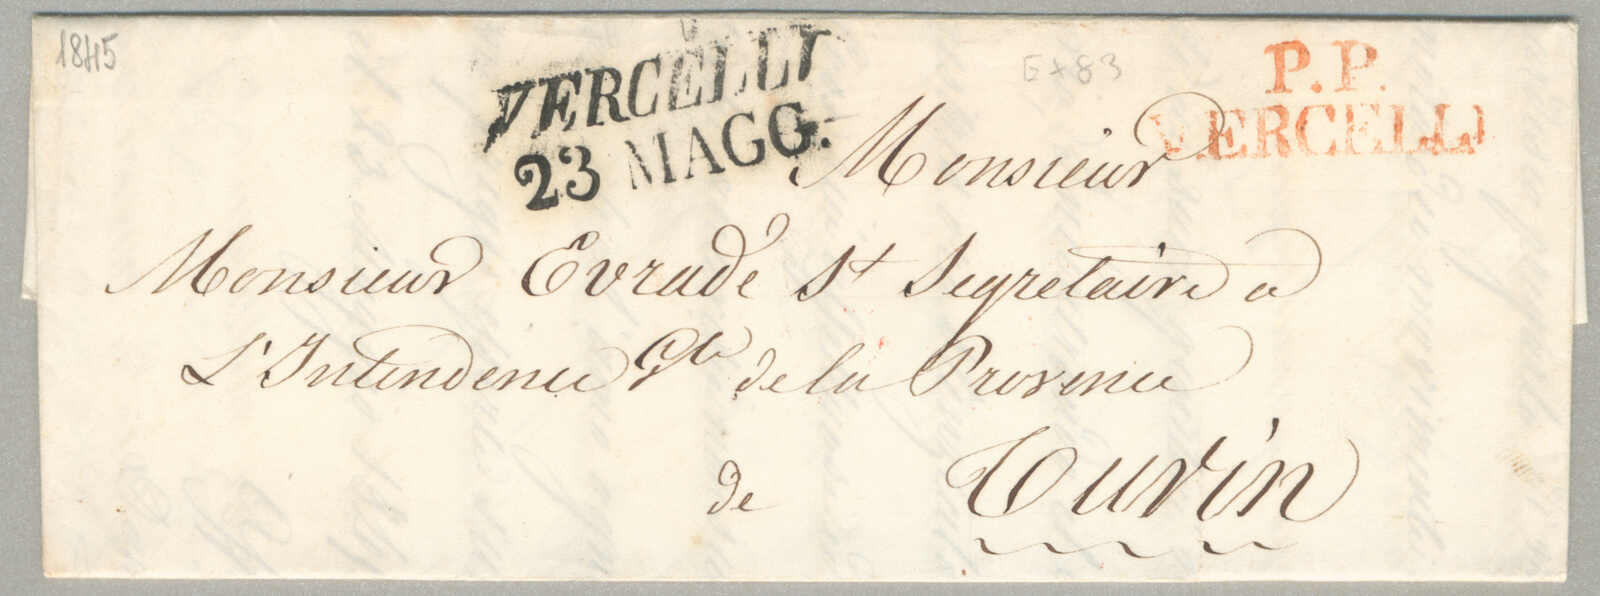 1845
VERCELLI
23 MAGG.
P.P.
VERCELLI
Monsieur
Monsieur Evrade St Segretaire a
L'Intendence Gle de la Provence
de
Turin